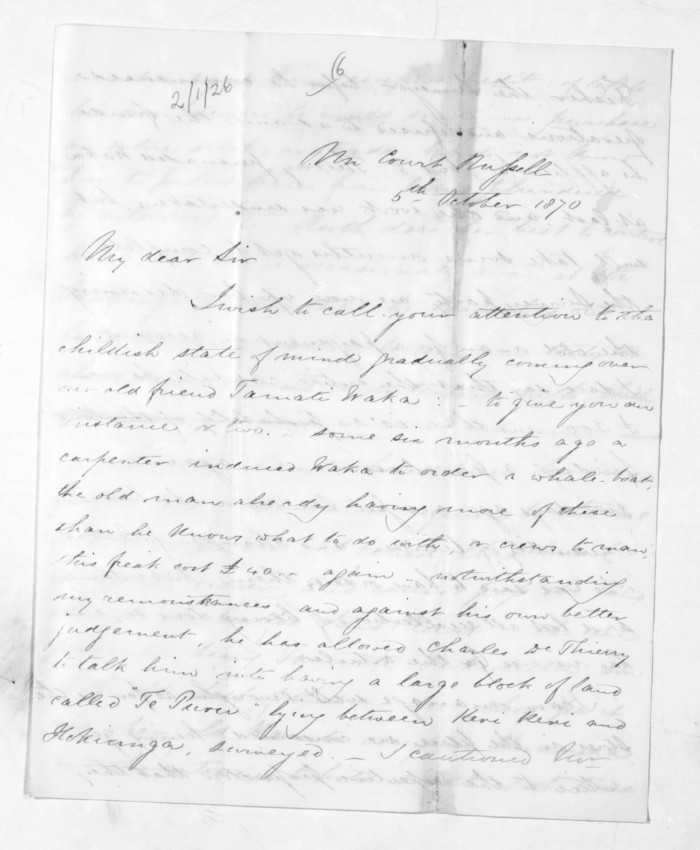 (6
2/1/26
Court Russell
5th October 1870
My dear Sir
I wish to call your attention to the
childish state of mind gradually coming over
our old friend Tamati Waka : - to give you an
instance or two. - some six months ago a
carpenter induced Waka to order a whale boat,
the old man already having more of these
than he knows what to do with, or crews to man,
this freak cost £40 - again - notwithstanding
my remonstrances and against his own better
judgement, he has allowed Charles De Thierry
to talk him into having a large block of land
called "Te Puru" lying between Keri Keri and
Hokianga, surveyed. - I cautioned